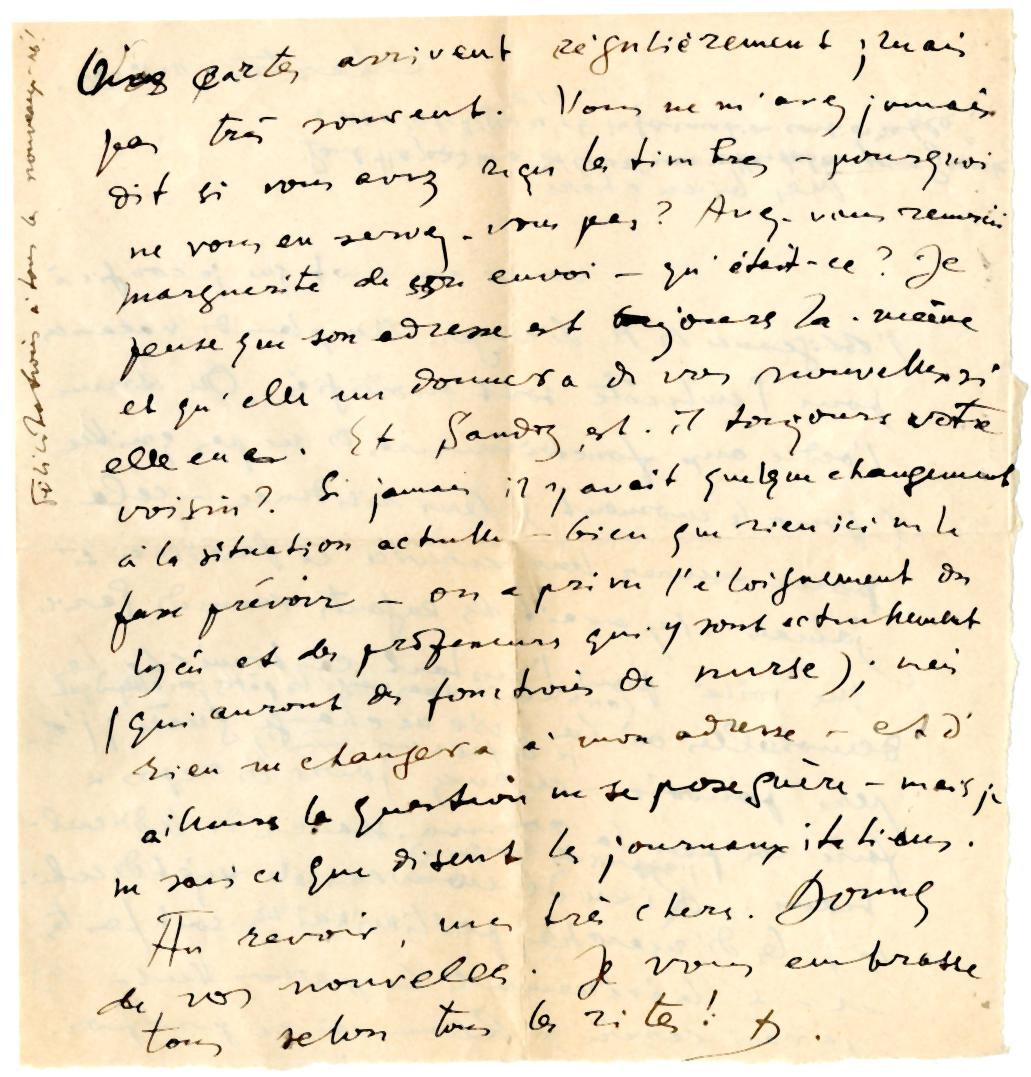 Vos cartes arrivent régulièrement, mais
pas très souvent. Vous ne m'avez jamais
dit si vous avez reçu les timbres – pourquoi
ne vous en servez-vous pas? Avez-vous remercié
Marguerite de son envoi – qu'était-ce? Je
pense que son adresse est toujours la même
et qu'elle me donnera de vos nouvelles, si
elle en a. Et Sandoz, est-il toujours votre
voisin? Si jamais il y avait quelque changement
à la situation actuelle – bien que rien ici ne le
fasse prévoir – on a prévu l'éloignement du
lycée et des professeurs qui y sont actuellement
(qui auront des fonctions de nurse); mais
rien ne changera à mon adresse – et d'
ailleurs la question ne se pose guère – mais je
ne sais ce que disent les journaux italiens.
Au revoir, mes très chers. Donnez
de vos nouvelles. Je vous embrasse
tous selon tous les rites! D.
Félicitations à tous les nouveaux-nés!